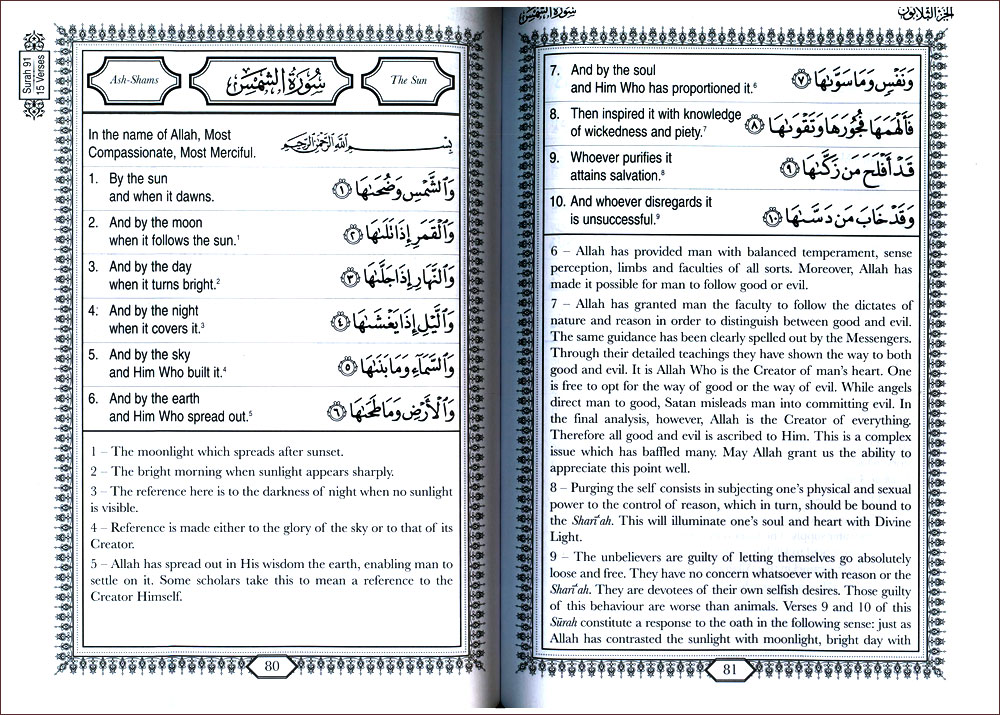 Surah 91
15 Verses
Ash-Shams
سُورَةُ الشَّمْسِ
The Sun
In the name of Allah, Most
Compassionate, Most Merciful.
بِسْمِ اللَّهِ الرَّحْمَٰنِ الرَّحِيمِ
1. By the sun
and when it dawns.
وَالشَّمْسِ وَضُحَىٰهَا ١
2. And by the moon
when it follows the sun.¹
وَالْقَمَرِ إِذَا تَلَىٰهَا ٢
3. And by the day
when it turns bright.²
وَالنَّهَارِ إِذَا جَلَّىٰهَا ٣
4. And by the night
when it covers it.³
وَالَّيْلِ إِذَا يَغْشَىٰهَا ٤
5. And by the sky
and Him Who built it.⁴
وَالسَّمَاءِ وَمَا بَنَىٰهَا ٥
6. And by the earth
and Him Who spread out.⁵
وَالْأَرْضِ وَمَا طَحَىٰهَا ٦
1 – The moonlight which spreads after sunset.
2 – The bright morning when sunlight appears sharply.
3 – The reference here is to the darkness of night when no sunlight
is visible.
4 – Reference is made either to the glory of the sky or to that of its
Creator.
5 – Allah has spread out in His wisdom the earth, enabling man to
settle on it. Some scholars take this to mean a reference to the
Creator Himself.
80
سُورَةُ الشَّمْسِ
الجزء الثلاثون
7. And by the soul
and Him Who has proportioned it.⁶
وَنَفْسٍ وَمَا سَوَّىٰهَا ٧
8. Then inspired it with knowledge
of wickedness and piety.⁷
فَأَلْهَمَهَا فُجُورَهَا وَتَقْوَىٰهَا ٨
9. Whoever purifies it
attains salvation.⁸
قَدْ أَفْلَحَ مَن زَكَّىٰهَا ٩
10. And whoever disregards it
is unsuccessful.⁹
وَقَدْ خَابَ مَن دَسَّىٰهَا ١٠
6 – Allah has provided man with balanced temperament, sense
perception, limbs and faculties of all sorts. Moreover, Allah has
made it possible for man to follow good or evil.
7 – Allah has granted man the faculty to follow the dictates of
nature and reason in order to distinguish between good and evil.
The same guidance has been clearly spelled out by the Messengers.
Through their detailed teachings they have shown the way to both
good and evil. It is Allah Who is the Creator of man's heart. One
is free to opt for the way of good or the way of evil. While angels
direct man to good, Satan misleads man into committing evil. In
the final analysis, however, Allah is the Creator of everything.
Therefore all good and evil is ascribed to Him. This is a complex
issue which has baffled many. May Allah grant us the ability to
appreciate this point well.
8 – Purging the self consists in subjecting one's physical and sexual
power to the control of reason, which in turn, should be bound to
the Sharī'ah. This will illuminate one's soul and heart with Divine
Light.
9 – The unbelievers are guilty of letting themselves go absolutely
loose and free. They have no concern whatsoever with reason or the
Sharī'ah. They are devotees of their own selfish desires. Those guilty
of this behaviour are worse than animals. Verses 9 and 10 of this
Sūrah constitute a response to the oath in the following sense: just as
Allah has contrasted the sunlight with moonlight, bright day with
81